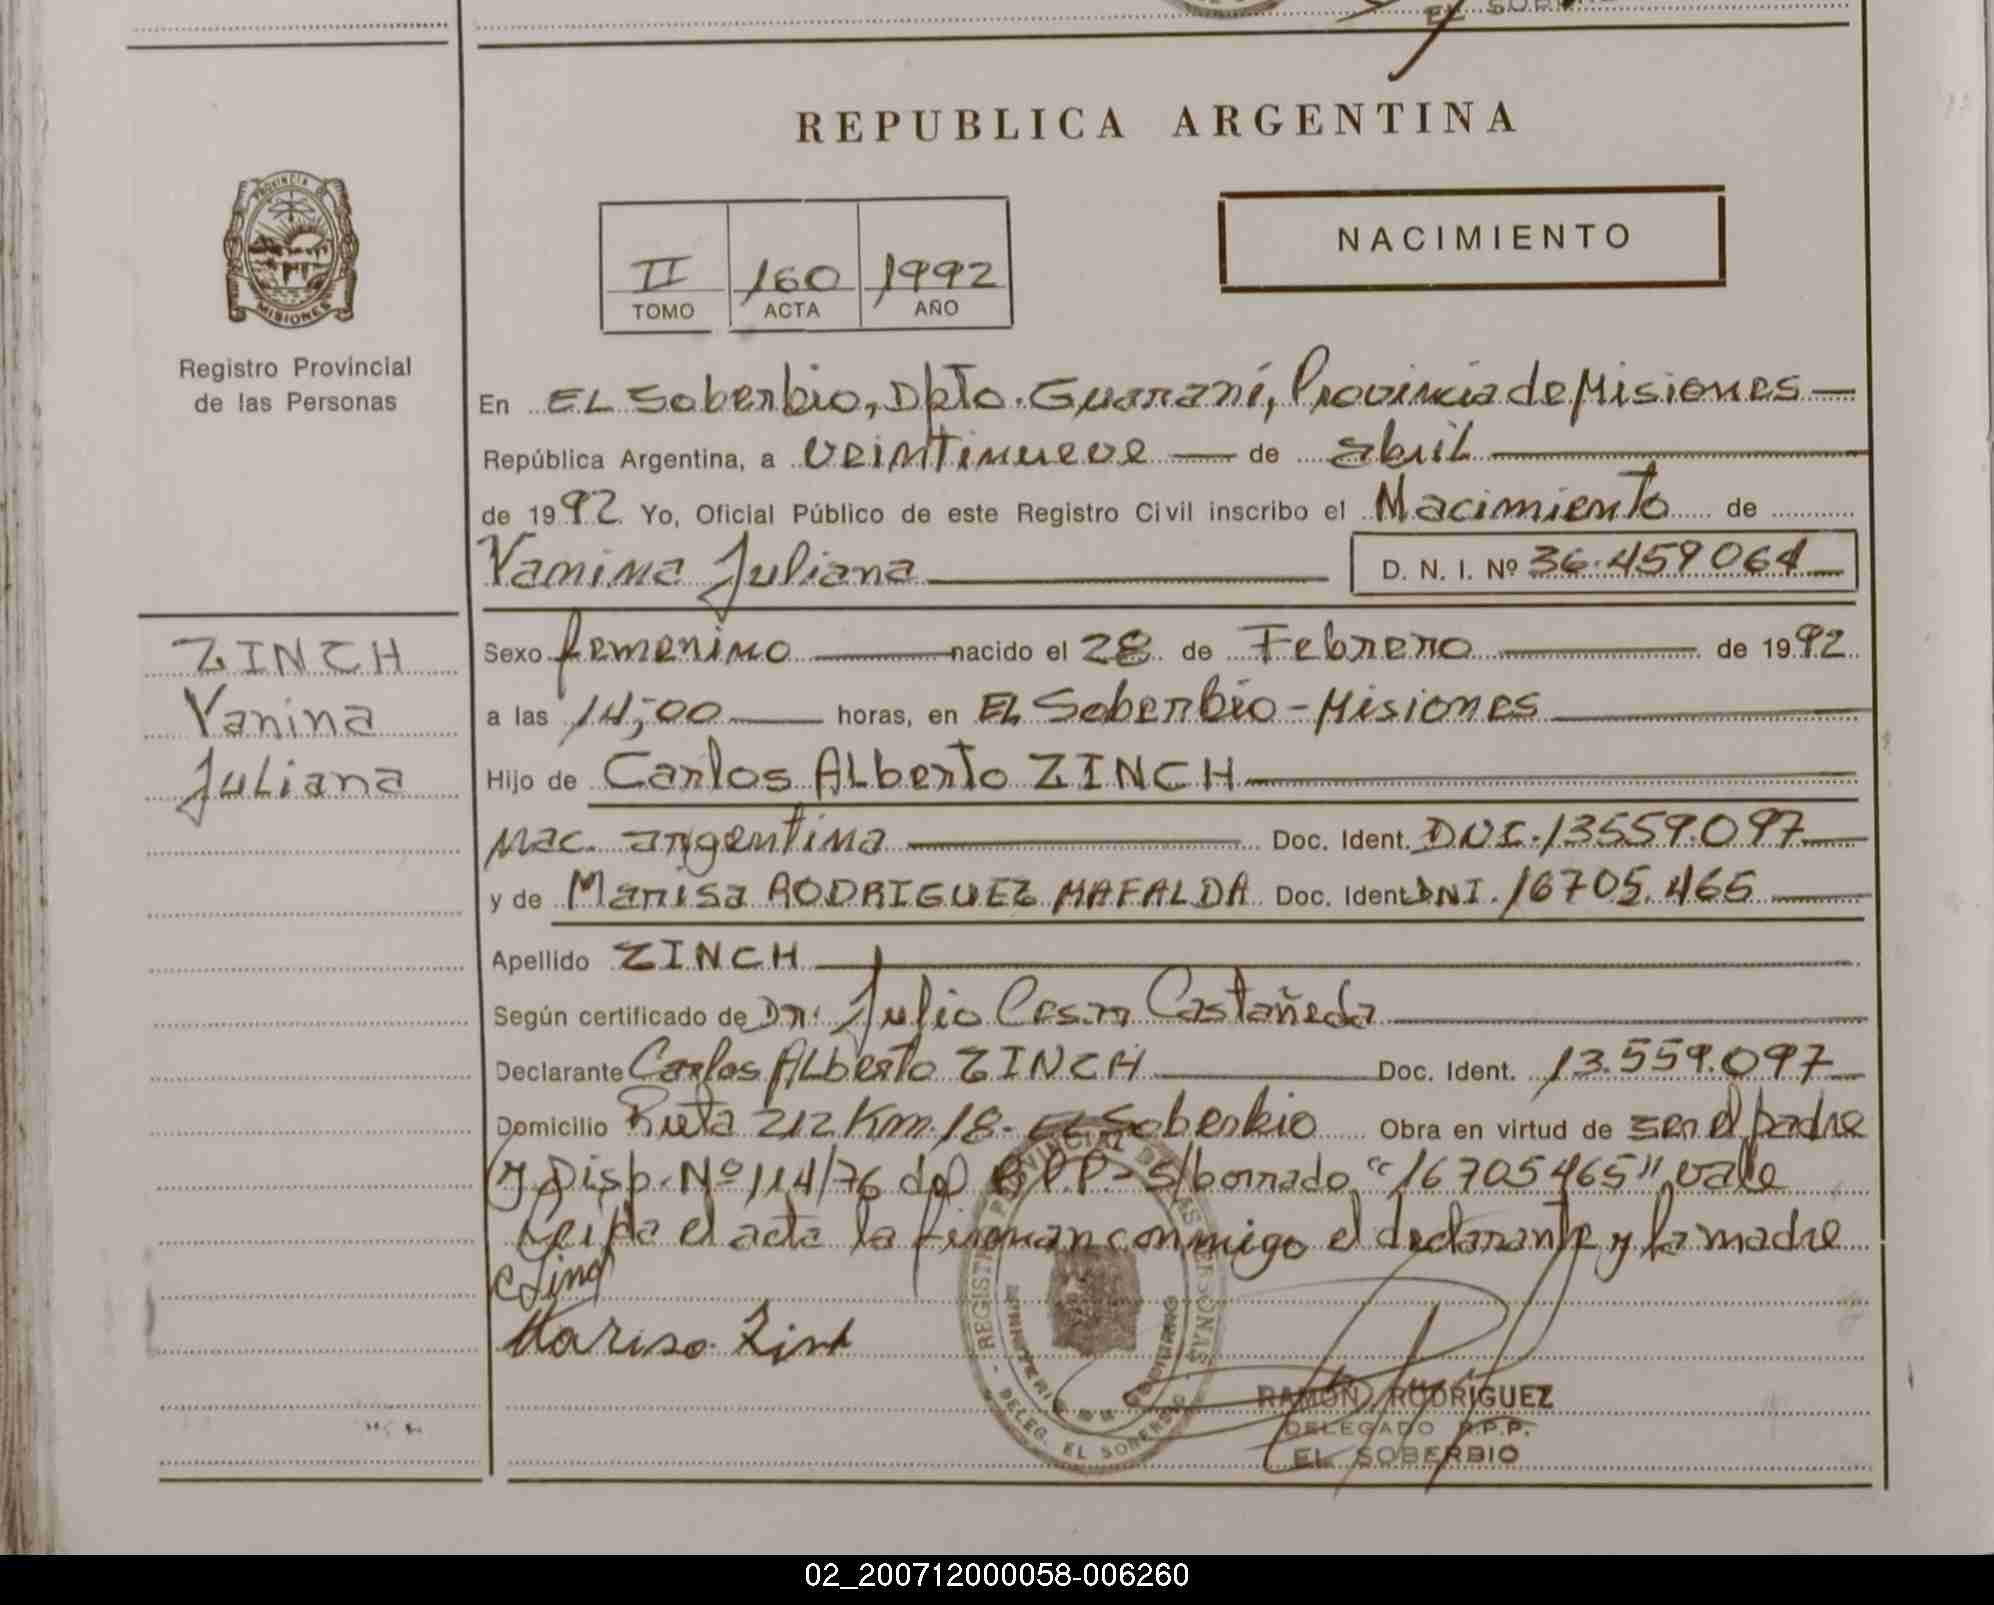 EL SOBERBIO
REPUBLICA ARGENTINA
PROVINCIA DE
MISIONES
Registro Provincial
de las Personas
NACIMIENTO
II 160 1992
TOMO ACTA AÑO
En EL Soberbio, Dpto. Guaraní, Provincia de Misiones
República Argentina, a veintinueve de abril
de 1992 Yo, Oficial Público de este Registro Civil inscribo el Nacimiento de
Yanina Juliana D. N. I. Nº 36.459064
ZINCH
Yanina
Juliana
Sexo femenino nacido el 28 de Febrero de 1992
a las 14,00 horas, en EL Soberbio - Misiones
Hijo de Carlos ALberto ZINCH
Nac. argentina Doc. Ident. DNI. 13559.097
y de Marisa RODRIGUEZ MAFALDA Doc. Ident DNI. 16705.465
Apellido ZINCH
Según certificado de Dr. Julio Cesar Castañeda
Declarante Carlos ALberto ZINCH Doc. Ident. 13.559.097
Domicilio Ruta 212 Km. 18 - EL Soberbio Obra en virtud de ser el padre
y Disp. Nº 114/76 del R.P.P - S/borrado "16705465" vale
Leida el acta la firman conmigo el declarante y la madre
Marisa
REGISTRO PROVINCIAL DE LAS PERSONAS
MINISTERIO DE GOBIERNO
- DELEG. EL SOBERBIO -
RAMON RODRIGUEZ
DELEGADO R.P.P.
EL SOBERBIO
02_200712000058-006260